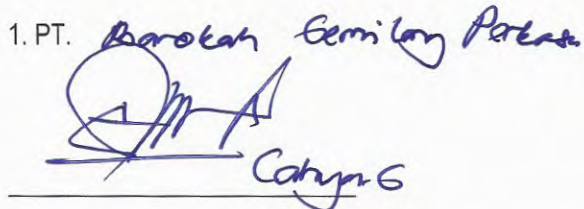 1. PT. Barokah Gemilang Perkasa
Cahyo G